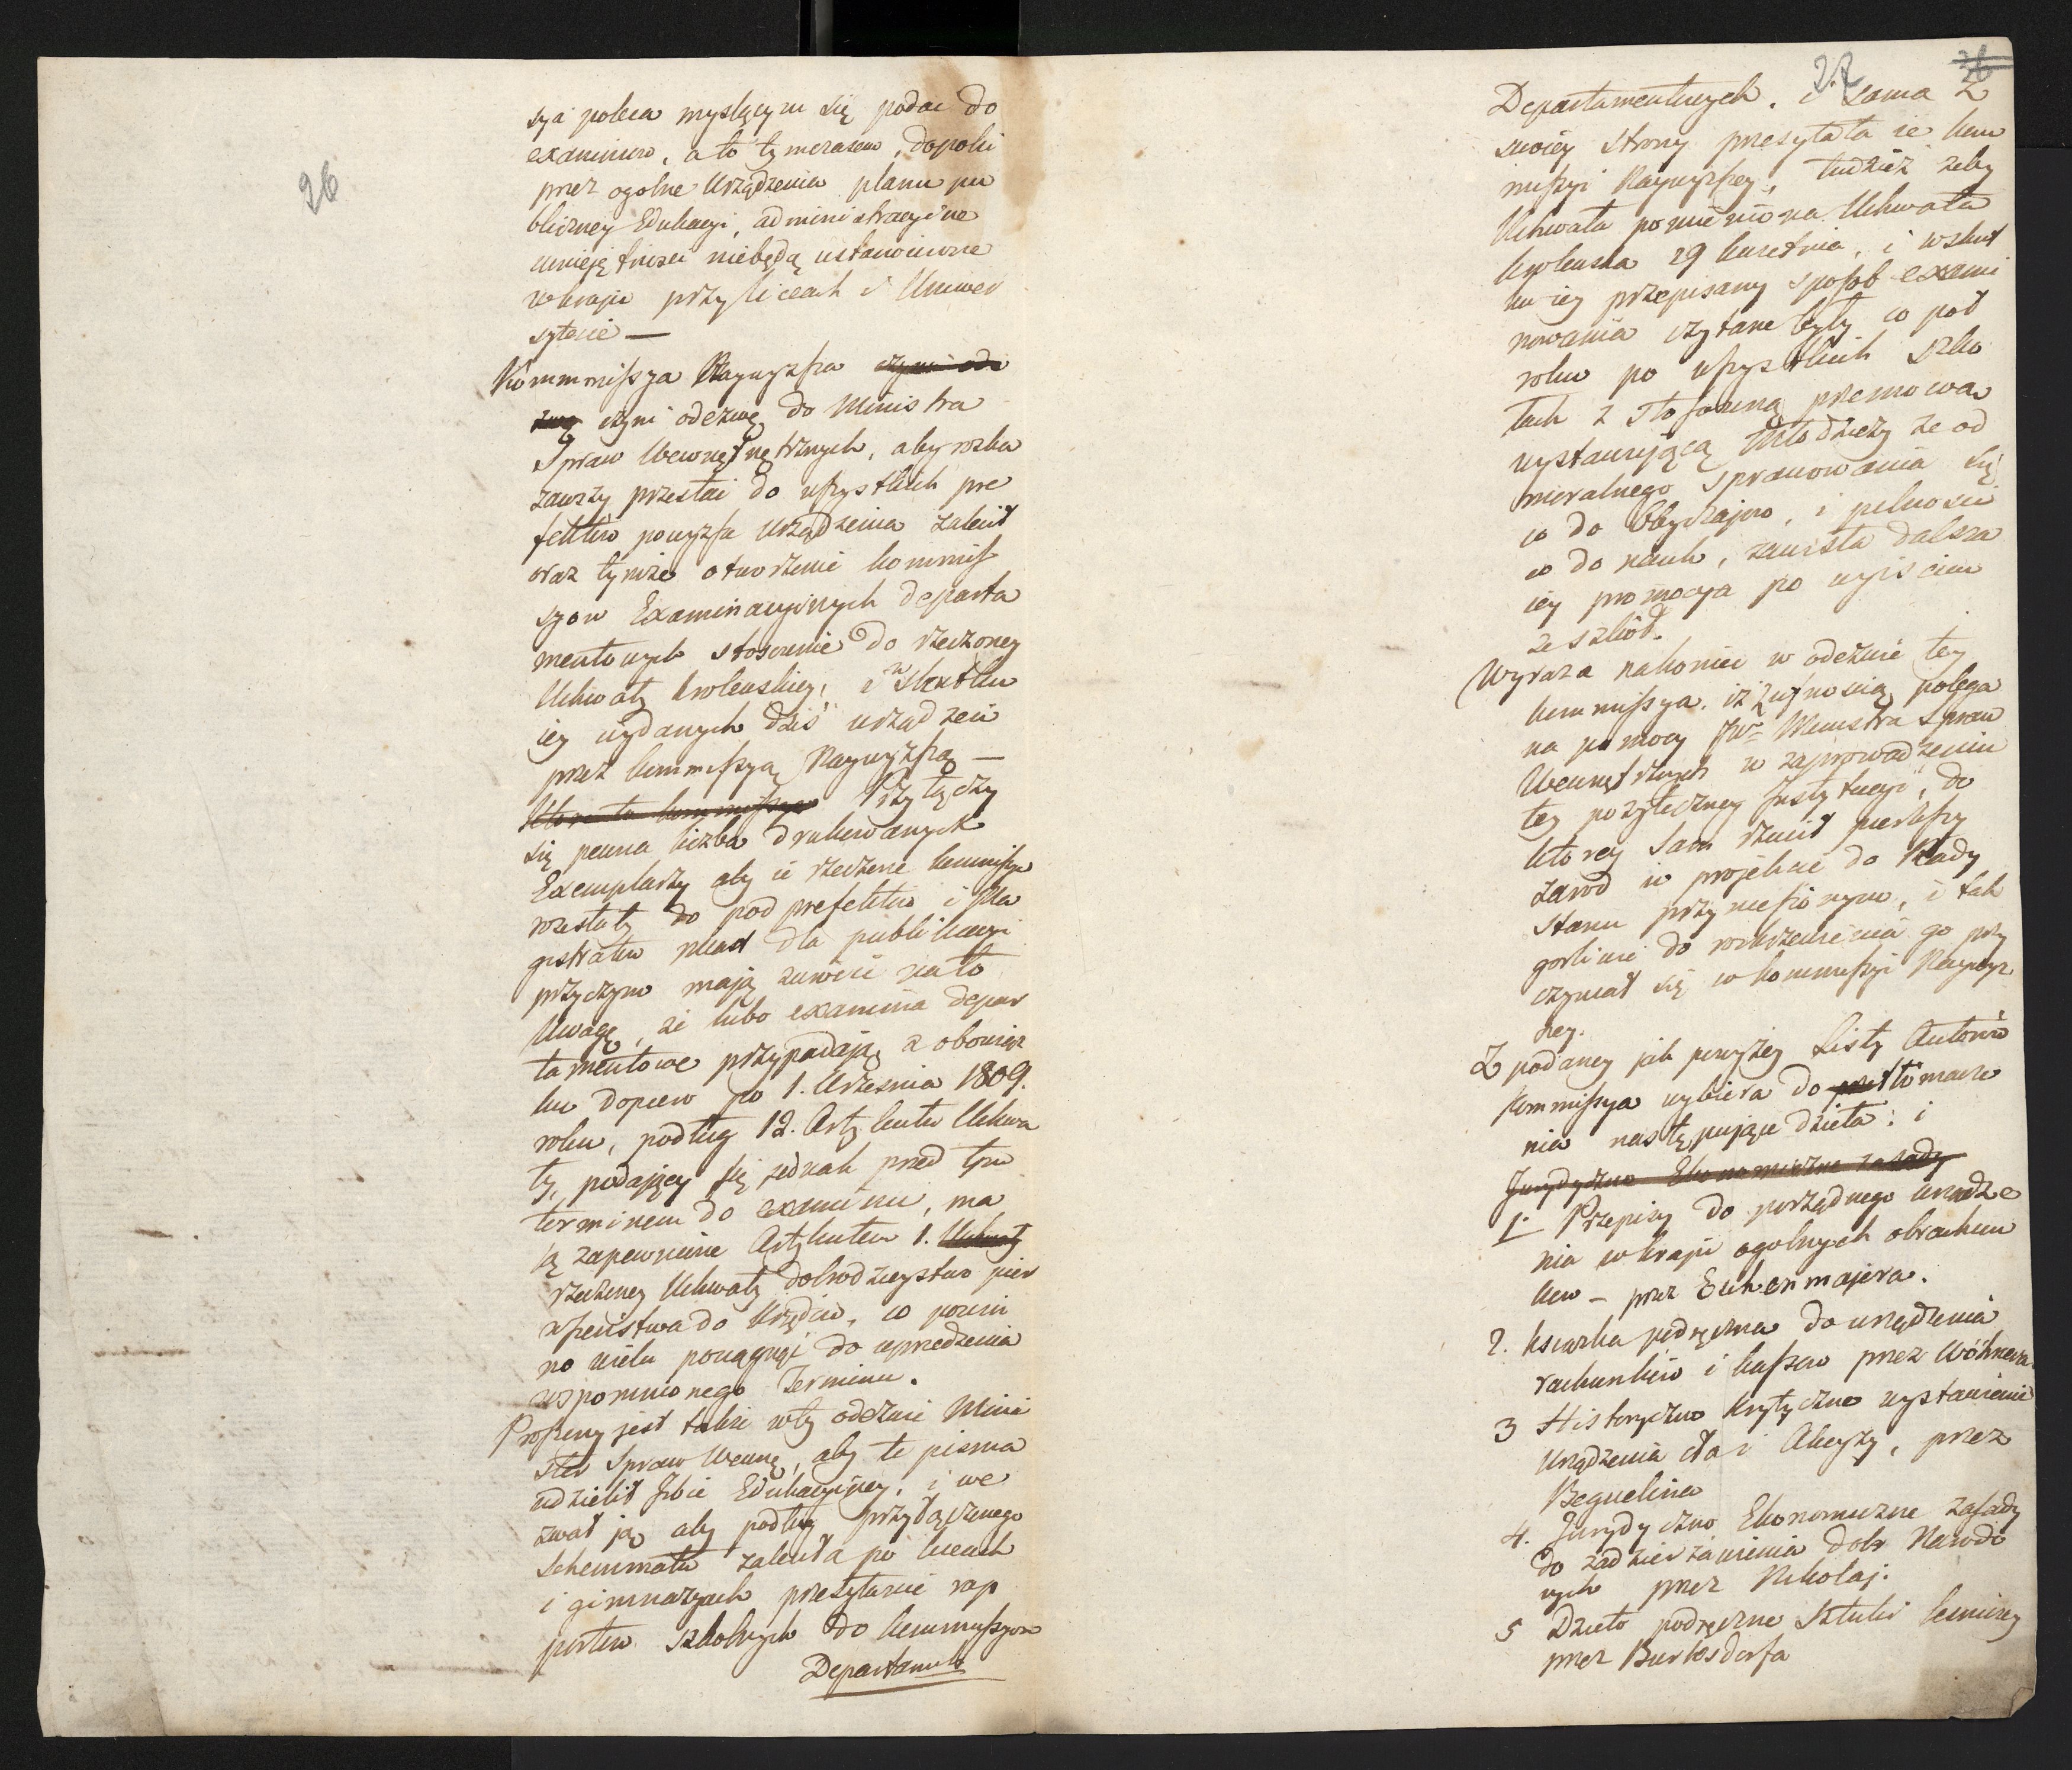 26
sya poleca myslącym się podać do
examinów, a to tymczasem, dopóki
przez ogolne Urządzenia planu pu
bliczney Edukacyi, administracyine
umieiętności niebędą ustanowione
w kraju przy liceach i Uniwer
sytecie —
Kommissya Naywyzsza czyni ode
zwę czyni odezwę do Ministra
Spraw Wewnętrznych, aby rozka
zawszy przesłać do wszystkich pre
fektów powyzsze Urządzenia zalecił
oraz tymże otworzenie kommis
syow Examinacyinych departa
mentowych stosownie do rzeczoney
Uchwały krolewskiey, i w skutku
iey wydanych dziś urządzeń
przez kommissyą Naywyzszą —
Przyłączy
się pewna liczba drukowanych
Exemplarzy aby ie rzeczone kommissye
rozesłały do podprefektów i Ma
gistratów miast dla publikacyi
przyczym maią zwrócić na to
Uwagę, że lubo examina depar
tamentowe przypadaią z obowiąz
ku dopiero po 1. Września 1809.
roku, podług 12. Artykułu Uchwa
ły, podaiący się iednak przed tym
terminem do examinu, ma
ią zapewnione Artykułem 1. Uchwały
rzeczoney Uchwały dobrodzieystwo pier
wszeństwa do Urzędów, co powin
no wielu pociągnąć do uprzedzenia
wspomnionego Terminu.
Proszony jest także w tey odezwie Mini
ster Spraw Wewnę, aby te pisma
udzielił Izbie Edukacyiney, i we
zwał ją aby podług przyłączonego
Schemmatu zaleciła po liceach
i gimnazyach przesyłanie rap
portów szkolnych do kommissyow
Departament
27
26
Departamentowych. i sama z
swoiey strony przesyłała ie kom
missyi Naywyzszey, tudzież żeby
Uchwała pomieniona Uchwała
krolewska 29 kwietnia, i w skut
ku iey przepisany sposob exami
nowania czytane były co pół
roku po wszystkich szko
łach z stosowną przemową
wystawuiącą Młodzieży że od
moralnego sprawowania się
co do obyczaiow, i pilności
co do nauk, zawisła dalsza
iey promocya po wyiściu
ze szkół.
Wyraza nakoniec w odezwie tey
kommissya, iż z ufnością polega
na pomocy JW Ministra Spraw
Wewnętrznych w zaprowadzeniu
tey pozyteczney Instytucyi, do
ktorey sam rzucił pierwszy
zarod w projekcie do Rady
Stanu przyniesionym, i tak
gorliwie do rozkrzewienia go przy
czyniał się w kommissyi Naywyz
szey.
Z podaney jak powyzey Listy Autorów
Kommissya wybiera do przetłomacze
nia następuiące dzieła: i
Jurydyczno Ekonomiczne zasady
1. Przepisy do porządnego urządze
nia w kraju ogolnych obrachun
kow – przez Eschenmajera.
2. ksiązka podręczna do urządzenia
rachunków i kassow przez Wöhnera
3 Historyczno krytyczne wystawienie
Urządzenia cła i Akcyzy, przez
Beguelina
4. Jurydyczno Ekonomiczne zasady
do zadzierzawienia dobr Narodo
wych przez Nikolaj.
5 Dzieło podręczne sztuki lesniczey
przez Burksdorfa